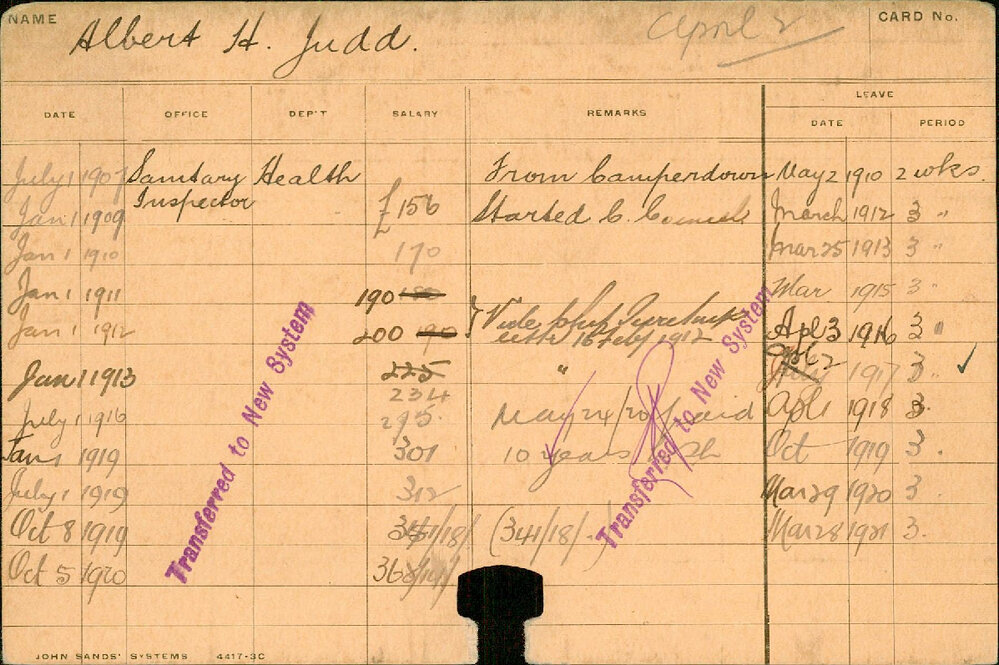 NAME Albert H. Judd. April 2 CARD No.
LEAVE
DATE OFFICE DEP'T SALARY REMARKS DATE PERIOD
July 1 1907 Sanitary Health From Camperdown May 2 1910 2 wks.
Jan 1 1909 Inspector £156 Started C. Council March 1912 3 "
Jan 1 1910 170 Mar 25 1913 3 "
Jan 1 1911 190 Mar 1915 3 "
Jan 1 1912 200 190 Vide 16 Feby 1912 Apl 3 1916 3 "
Jan 1 1913 225 " 1917 3 " ✓
234
July 1 1916 295 May 24/20 paid Apl 1 1918 3
Jan 1 1919 301 10 years Oct 1919 3
July 1 1919 312 Mar 29 1920 3
Oct 8 1919 341/18/ (341/18/-) Mar 28 1921 3
Oct 5 1920
Transferred to New System
Transferred to New System
JOHN SANDS' SYSTEMS 4417-3C